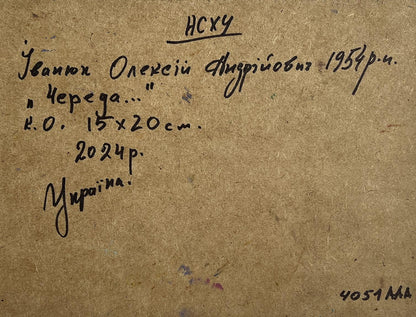 НСХУ
Іванюк Олексій Андрійович 1954р.н.
„Череда..."
к.о. 15х20см.
2024р.
Україна.
4051АДА